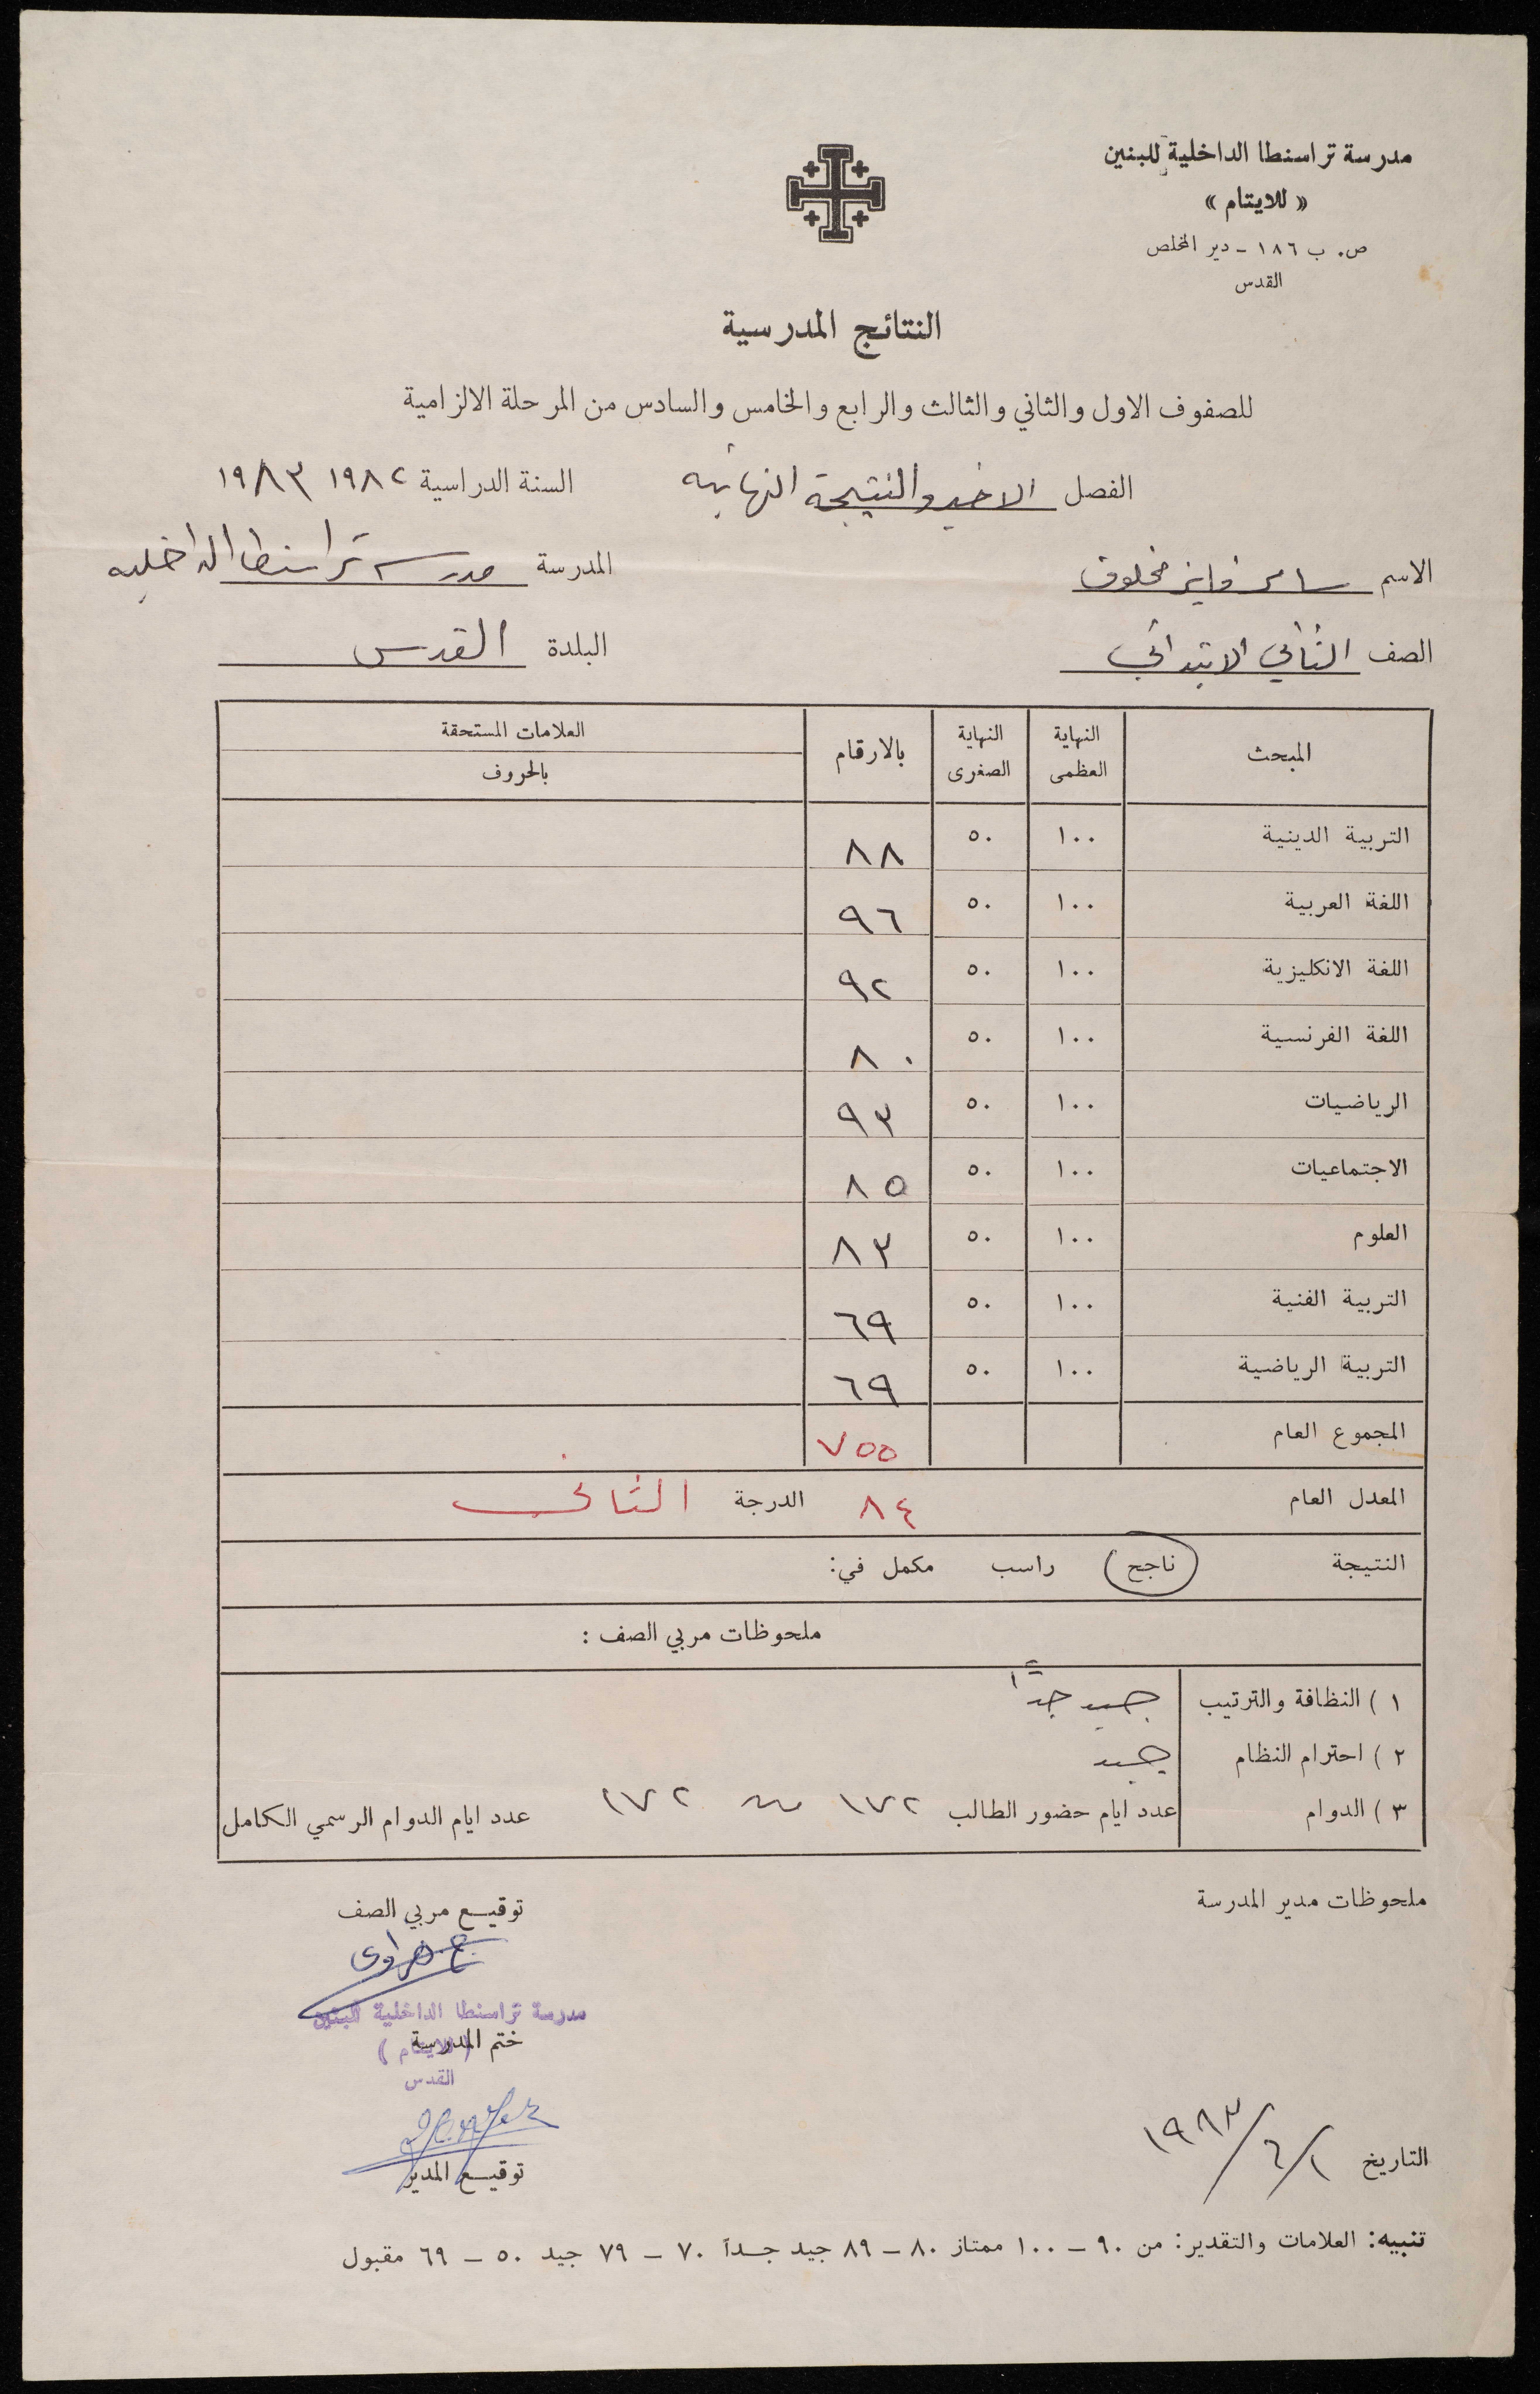 مدرسة تراسنطا الداخلية للبنين
« للايتام »
ص. ب ١٨٦ - دير المخلص
القدس
النتائج المدرسية
للصفوف الاول والثاني والثالث والرابع والخامس والسادس من المرحلة الالزامية
الفصل الاخير والنتيجة النهائية السنة الدراسية ١٩٨٢ ١٩٨٣
الاسم سامر فايز مخلوف المدرسة مدرسة تراسنطا الداخلية
الصف الثاني الابتدائي البلدة القدس
المبحث النهاية العظمى النهاية الصغرى بالارقام العلامات المستحقة بالحروف
التربية الدينية ١٠٠ ٥٠ ٨٨
اللغة العربية ١٠٠ ٥٠ ٩٦
اللغة الانكليزية ١٠٠ ٥٠ ٩٢
اللغة الفرنسية ١٠٠ ٥٠ ٨٠
الرياضيات ١٠٠ ٥٠ ٩٣
الاجتماعيات ١٠٠ ٥٠ ٨٥
العلوم ١٠٠ ٥٠ ٨٣
التربية الفنية ١٠٠ ٥٠ ٦٩
التربية الرياضية ١٠٠ ٥٠ ٦٩
المجموع العام ٧٥٥
المعدل العام ٨٤ الدرجة الثاني
النتيجة ناجح راسب مكمل في:
ملحوظات مربي الصف :
١ ) النظافة والترتيب جيد جداً
٢ ) احترام النظام جيد
٣ ) الدوام عدد ايام حضور الطالب ١٧٢ من ١٧٢ عدد ايام الدوام الرسمي الكامل
ملحوظات مدير المدرسة
توقيع مربي الصف
مدرسة تراسنطا الداخلية للبنين
ختم المدرسة
( للايتام )
القدس
توقيع المدير
التاريخ ١/٦/١٩٨٣
تنبيه: العلامات والتقدير: من ٩٠ - ١٠٠ ممتاز ٨٠ - ٨٩ جيد جداً ٧٠ - ٧٩ جيد ٥٠ - ٦٩ مقبول